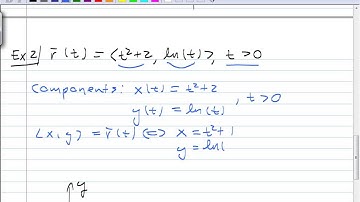 Ex 2/ r̄(t) = <t²+2, ln(t)>, t>0
Components: x(t) = t²+2
y(t) = ln(t) , t>0
<x,y> = r̄(t) <=> x = t²+1
y = ln(
y